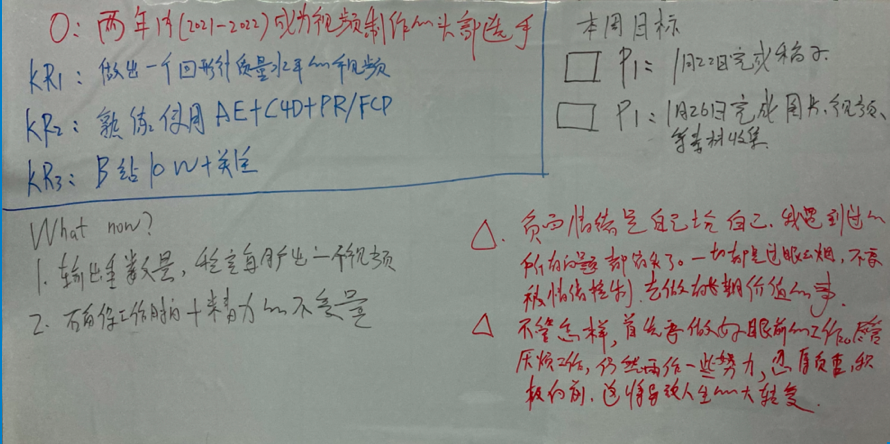 O: 两年内(2021-2022)成为视频制作的头部选手
KR1: 做出一个回形针质量水平的视频
KR2: 熟练使用AE+C4D+PR/FCP
KR3: B站10W+关注
本周目标
P1: 1月22日完成稿子.
P1: 1月26日完成图片、视频、
等素材收集.
What now?
1. 输出重数量, 稳定每月产出一个视频
2. 确保工作时间+精力的不变量
△. 负面情绪是自己给自己. 我遇到过的
所有问题都解决了。一切都是过眼云烟, 不要
被情绪控制. 去做有长期价值的事.
△ 不管怎样, 首先要做好眼前的工作。尽管
厌烦工作, 仍然要作一些努力, 忍辱负重, 积
极向前. 这将导致人生的大转变.